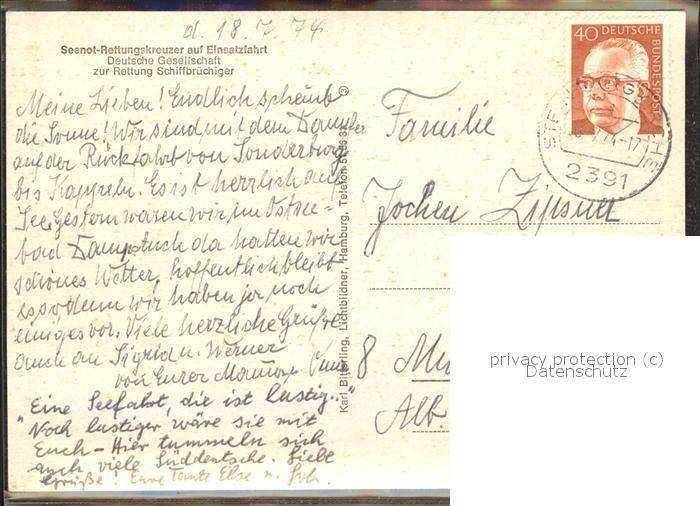 d. 18.7.74
Seenot-Rettungskreuzer auf Einsatzfahrt
Deutsche Gesellschaft
zur Rettung Schiffbrüchiger
Meine Lieben! Endlich scheint
die Sonne! Wir sind mit dem Dampfer
auf der Rückfahrt von Sonderburg
bis Kappeln. Es ist herrlich auf
See. Gestern waren wir im Ostsee-
bad Damp auch da hatten wir
schönes Wetter, hoffentlich bleibt
es so denn wir haben ja noch
einiges vor. Viele herzliche Grüße
auch an Sigrid u. Werner
von Eurer Mama
"Eine Seefahrt, die ist lustig.."
"Noch lustiger wäre sie mit
Euch - Hier tummeln sich
auch viele Süddeutsche. Liebe
Grüße! Eure Tante Else u.
Karl Bitterling, Lichtbildner, Hamburg, Telefon
40 DEUTSCHE
BUNDESPOST
74-17
2391
Familie
Jochen Zipsner
8
Alb.
privacy protection (c)
Datenschutz